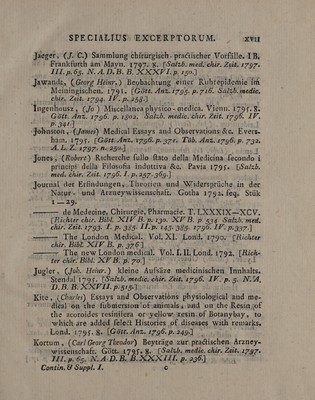 SPECIALIUS EXCERPTORUM. XVII
Jaeger, (J. C.) Sammlung chirurgisch-practischer Vorfälle. I B.
Frankfurth am Mayn. 1797. 8. [Saltzb. med. chir. Zeit. 1797.
III. p. 65. N. A. D. B. B. XXXVI. p. 190.]
Jawandt, (Georg Heinr.) Beobachtung einer Ruhrepidemie im
Meiningischen. 1791. [Gött. Anz. 1795. p. 716. Saltzb. medic.
chir. Zeit. 1794. IV. p. 258.]
Ingenhousz, (Jo) Miscellanea physico-medica. Vienn. 1795. 8.
[Gött. Anz. 1796. p. 1802. Saltzb. medic. chir. Zeit. 1796. IV.
p. 341.]
Johnston, (James) Medical Essays and Observations &c. Evers-
ham. 1795. [Gött. Anz. 1796. p. 371. Tüb. Anz. 1796. p. 732.
A. L. Z. 1797. n. 250.]
Jones, (Robert) Richerche sullo stato della Medicina secondo i
principi della Filosofia induttiva &c. Pavia 1795. [Saltzb.
med. chir. Zeit. 1796. I. p. 257. 369.]
Journal der Erfindungen, Theorien und Widersprüche in der
Natur- und Arzneywissenschaft. Gotha 1792. seq. Stük
1—29.
—— de Medecine, Chirurgie, Pharmacie. T. LXXXIX—XCV.
[Richter chir. Bibl. XIV B. p. 130. XV B. p. 534. Saltzb. med.
chir. Zeit. 1793. I. p. 385. II. p. 145. 385. 1790. IV. p. 337.]
—— The London Medical. Vol. XI. Lond. 1790. [Richter
chir. Bibl. XIV B. p. 376]
—— The new London medical. Vol. I. II. Lond. 1792. [Rich-
ter chir. Bibl. XV B. p. 70.]
Jugler, (Joh. Heinr.) kleine Aufsäze medicinischen Innhalts.
Stendal 1795. [Saltzb. medic. chir. Zeit. 1796. IV. p. 5. N. A.
D. B. B. XXVII. p. 515.]
Kite, (Charles) Essays and Observations physiological and me-
dical on the submersion of animals, and on the Resin of
the acoroides resinifera or yellow resin of Botanybay, to
which are added select Histories of diseases with remarks.
Lond. 1795. 8. [Gött. Anz. 1796. p. 249.]
Kortum, (Carl Georg Theodor) Beyträge zur practischen Arzney-
wissenschaft. Gött. 1795. 8. [Saltzb. medic. chir. Zeit. 1797.
III. p. 65. N. A. D. B. B. XXXIII. p. 236.]
Contin. & Suppl. I. c